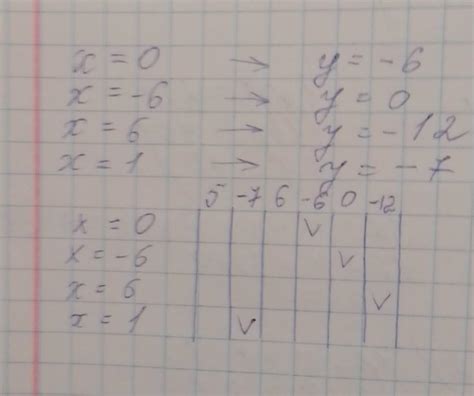 x = 0 → y = -6
x = -6 → y = 0
x = 6 → y = -12
x = 1 → y = -7
5 -7 6 -6 0 -12
x = 0 v
x = -6 v
x = 6 v
x = 1 v